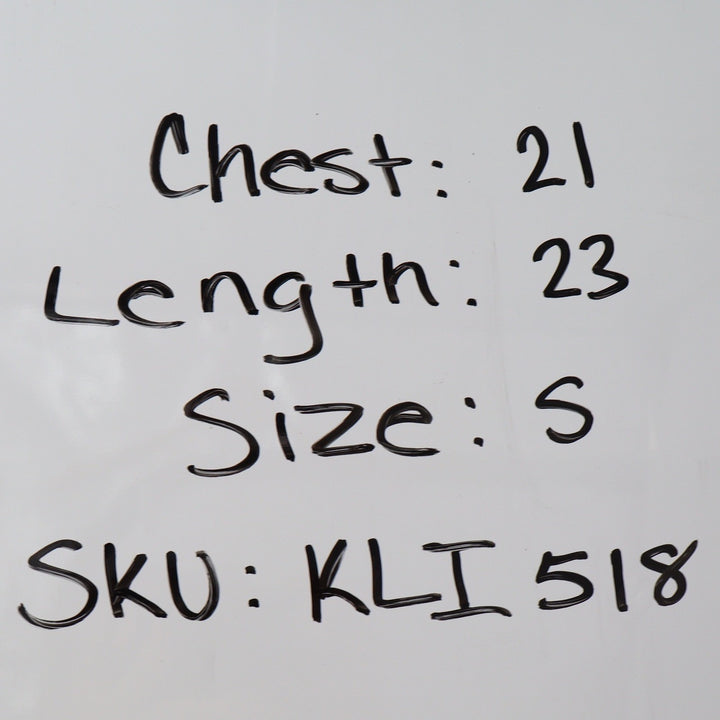 Chest: 21
Length: 23
Size: S
SKU: KLI 518